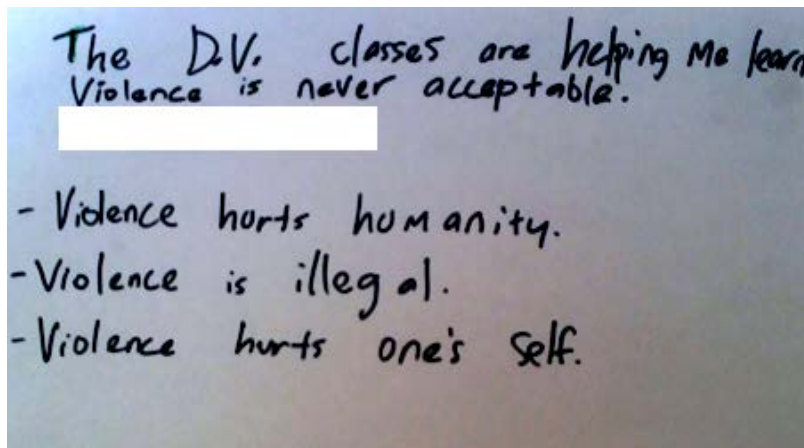 The D.V. classes are helping me learn
Violence is never acceptable.
- Violence hurts humanity.
- Violence is illegal.
- Violence hurts one's self.